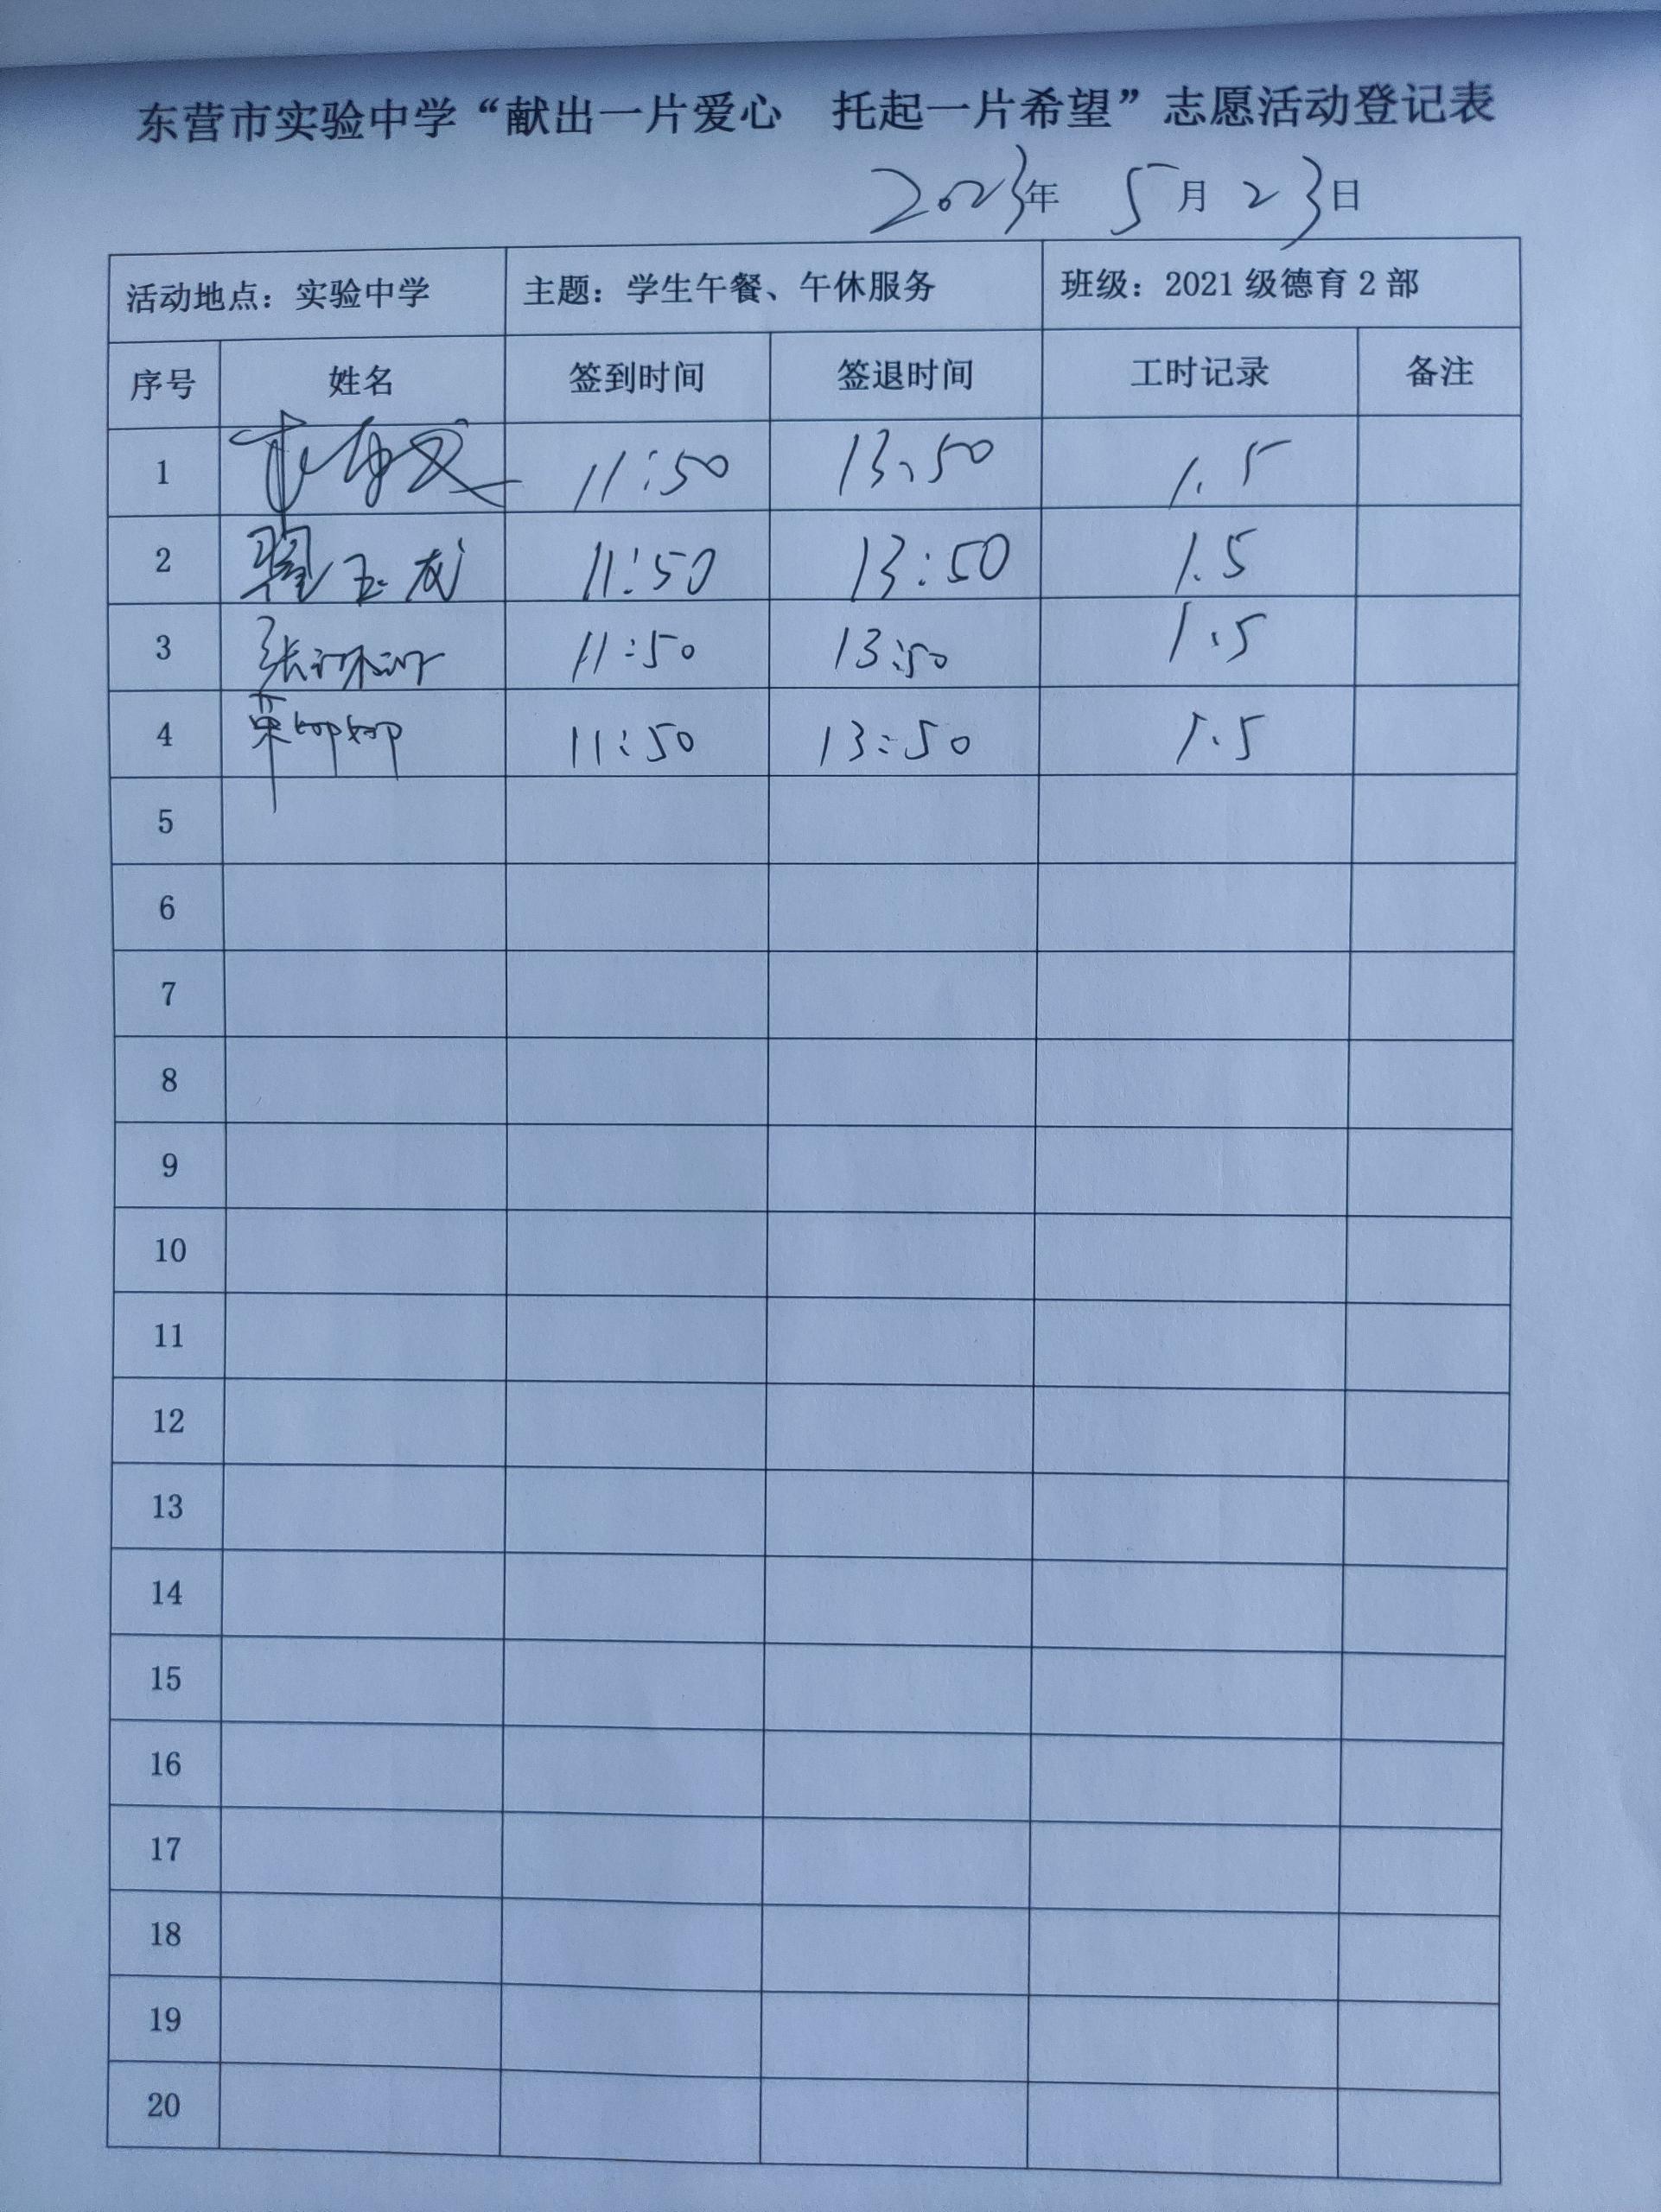 东营市实验中学“献出一片爱心 托起一片希望”志愿活动登记表
2023年 5月23日
活动地点：实验中学 主题：学生午餐、午休服务 班级：2021级德育2部
序号 姓名 签到时间 签退时间 工时记录 备注
1 11:50 13:50 1.5
2 翟玉龙 11:50 13:50 1.5
3 张 11:50 13:50 1.5
4 11:50 13:50 1.5
5
6
7
8
9
10
11
12
13
14
15
16
17
18
19
20